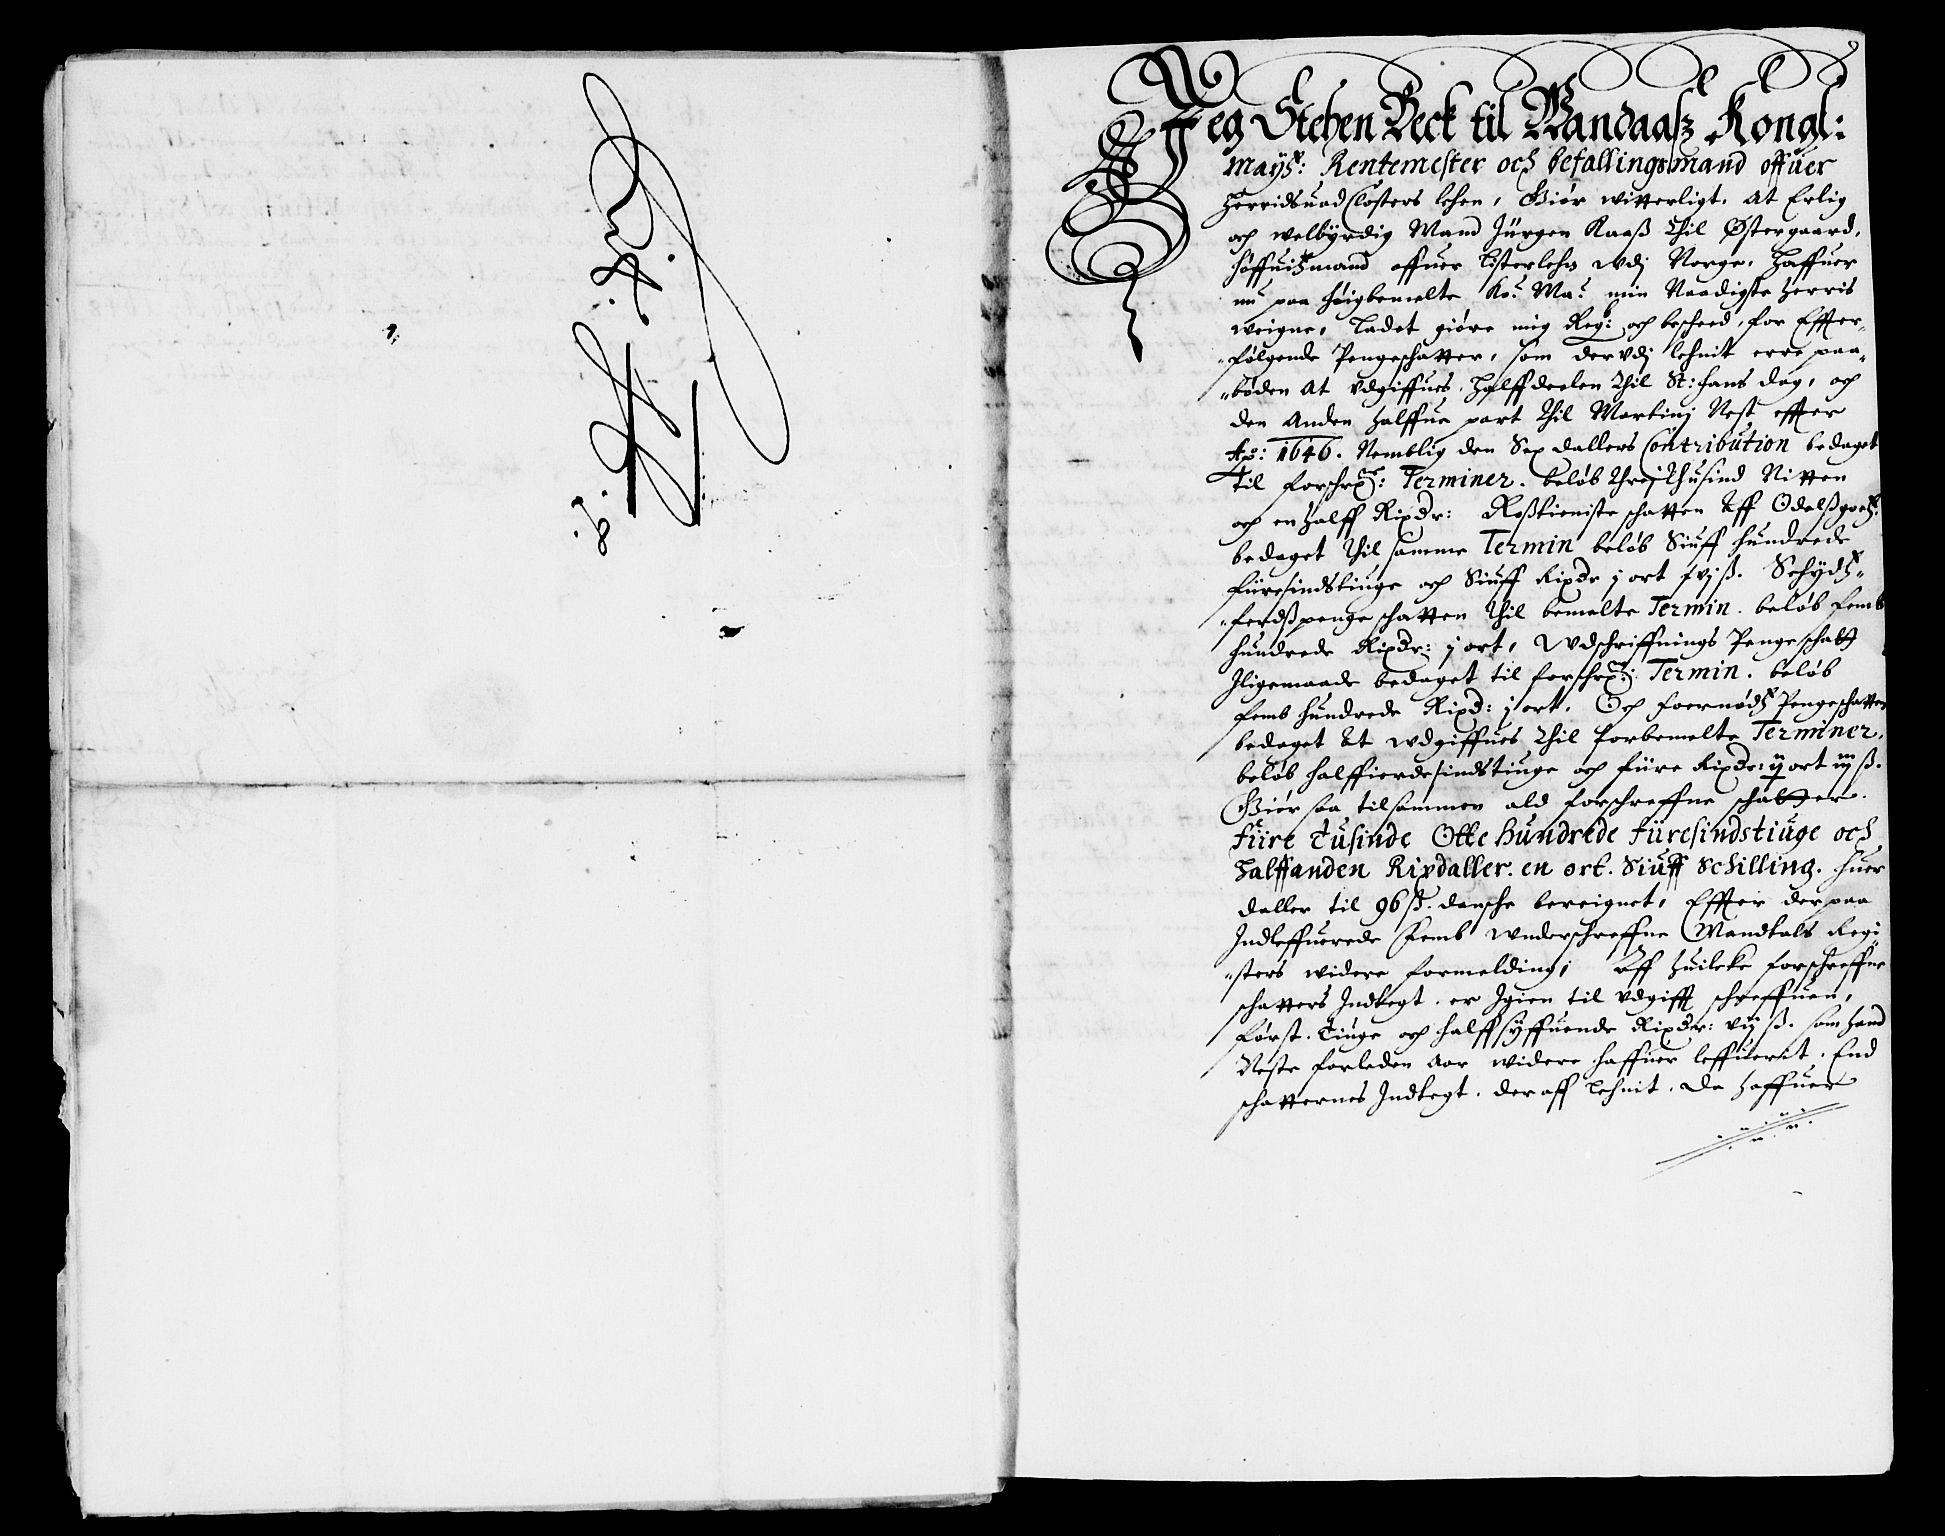 Jeg Stehen Beck til Wandaasz Kongl:
Mayₛ: Rentemester och befallingsmand offuer
Herridsuad Closters lehen, Giør witterligt, At Erlig
och welbyrdig Mand Jürgen Kaaß thil Østergaard,
høffuitzmand offuer Listerlehn udj Norge, Haffuer
nu paa høigbemelte Ko: Ma: min Naadigste Herris
weigne, ladet giøre mig Reg: och bescheed, for Effter-
-følgende Pengeschatter, som der udj lehnit erre paa-
-böden At udgiffues, halffdeelen thil St: hans dag, och
den Anden halffue part thil Martinj Nest effter
Ao: 1646. Nemblig den Sex dallers Contribution bedaget
til forschr: Terminer. beløb threj thusind Nitten
och en halff Rixdr: Roßtieniste schatten Aff Odelßgodtz
bedaget thil samme Termin beløb Siuff hundrede
fiiresindstiuge och Siuff Rixdr j ort xvj ß. Schydtz-
-ferdßpenge schatten thil bemelte Termin. beløb femb
hundrede Rixdr: j ort, Udschriffnings Pengeschatt
Jligemaade bedaget til forschr: Termin. beløb
femb hundrede Rixd: j ort. Och foernødtz Pengeschatten
bedaget At udgiffues thil forbemelte Terminer.
beløb halffierdesindstiuge och fiire Rixdr: ij ort iij ß.
Giør saa tilsammen ald forschreffne schatter.
fiire Tusinde Otte Hundrede fiiresindstiuge och
Halffanden Rixdaller. en ort. Siuff Schilling. huer
daller til 96 ß. dansche bereignet, Effter der paa
Indleffuerede femb underschreffne Mandtals Regi-
-sters widere formelding; Aff huilcke forschreffne
schatters Indtegt. er Jgien til udgifft schreffuen,
Først. Tiuge och halffsyffuende Rixdr: vij ß. som hand
Neste forleden Aar widere haffuer leffuerit. End
schatternes Indtegt. der aff Lehnit. Da haffuer